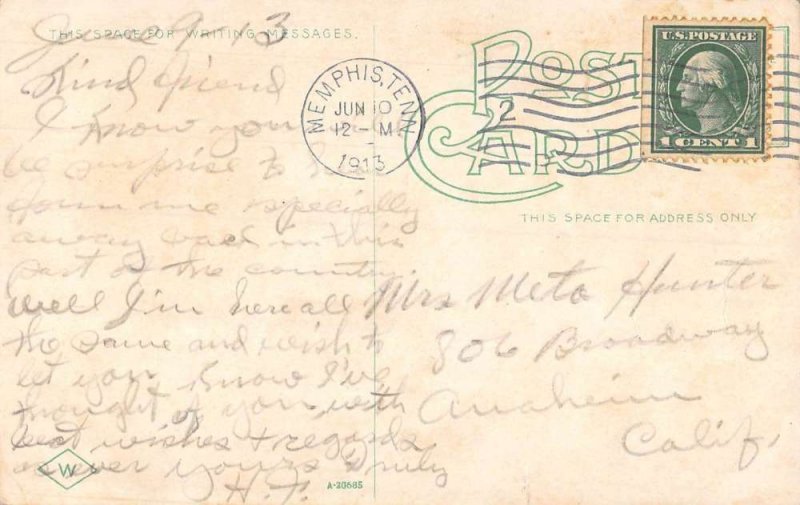 THIS SPACE FOR WRITING MESSAGES.
June 9 - 13
Kind friend
I know you
be surprise to
from me specially
away back in this
part of the country.
Well I'm here all
the same and wish to
let you know I've
thought of you with
best wishes + regards
as ever yours truly
H. F.
W
A-20685
MEMPHIS, TENN
JUN 10
12 - M
1913
POST CARD
2
U.S. POSTAGE
1 CENT 1
THIS SPACE FOR ADDRESS ONLY
Mrs Meta Hunter
806 Broadway
Anaheim
Calif.